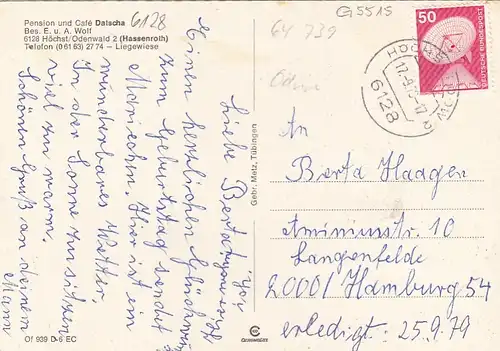 Pension und Café Datscha
Bes. E. u. A. Wolf
6128 Höchst/Odenwald 2 (Hassenroth)
Telefon (0 61 63) 27 74 – Liegewiese
6128
64 739
G5515
Liebe Berta
Einen herzlichen Glückwunsch
zum Geburtstag sendet
Mariechen. Hier ist ein
wunderbares Wetter,
In der Sonne zu sitzen
viel zu warm.
Schönen Gruß an deinen
Mann
Of 939 D-6 EC
Gebr. Metz, Tübingen
50
DEUTSCHE BUNDESPOST
6128
An
Berta Haagen
Armininstr. 10
Langenfelde
2000/ Hamburg 54
erledigt: 25.9.79